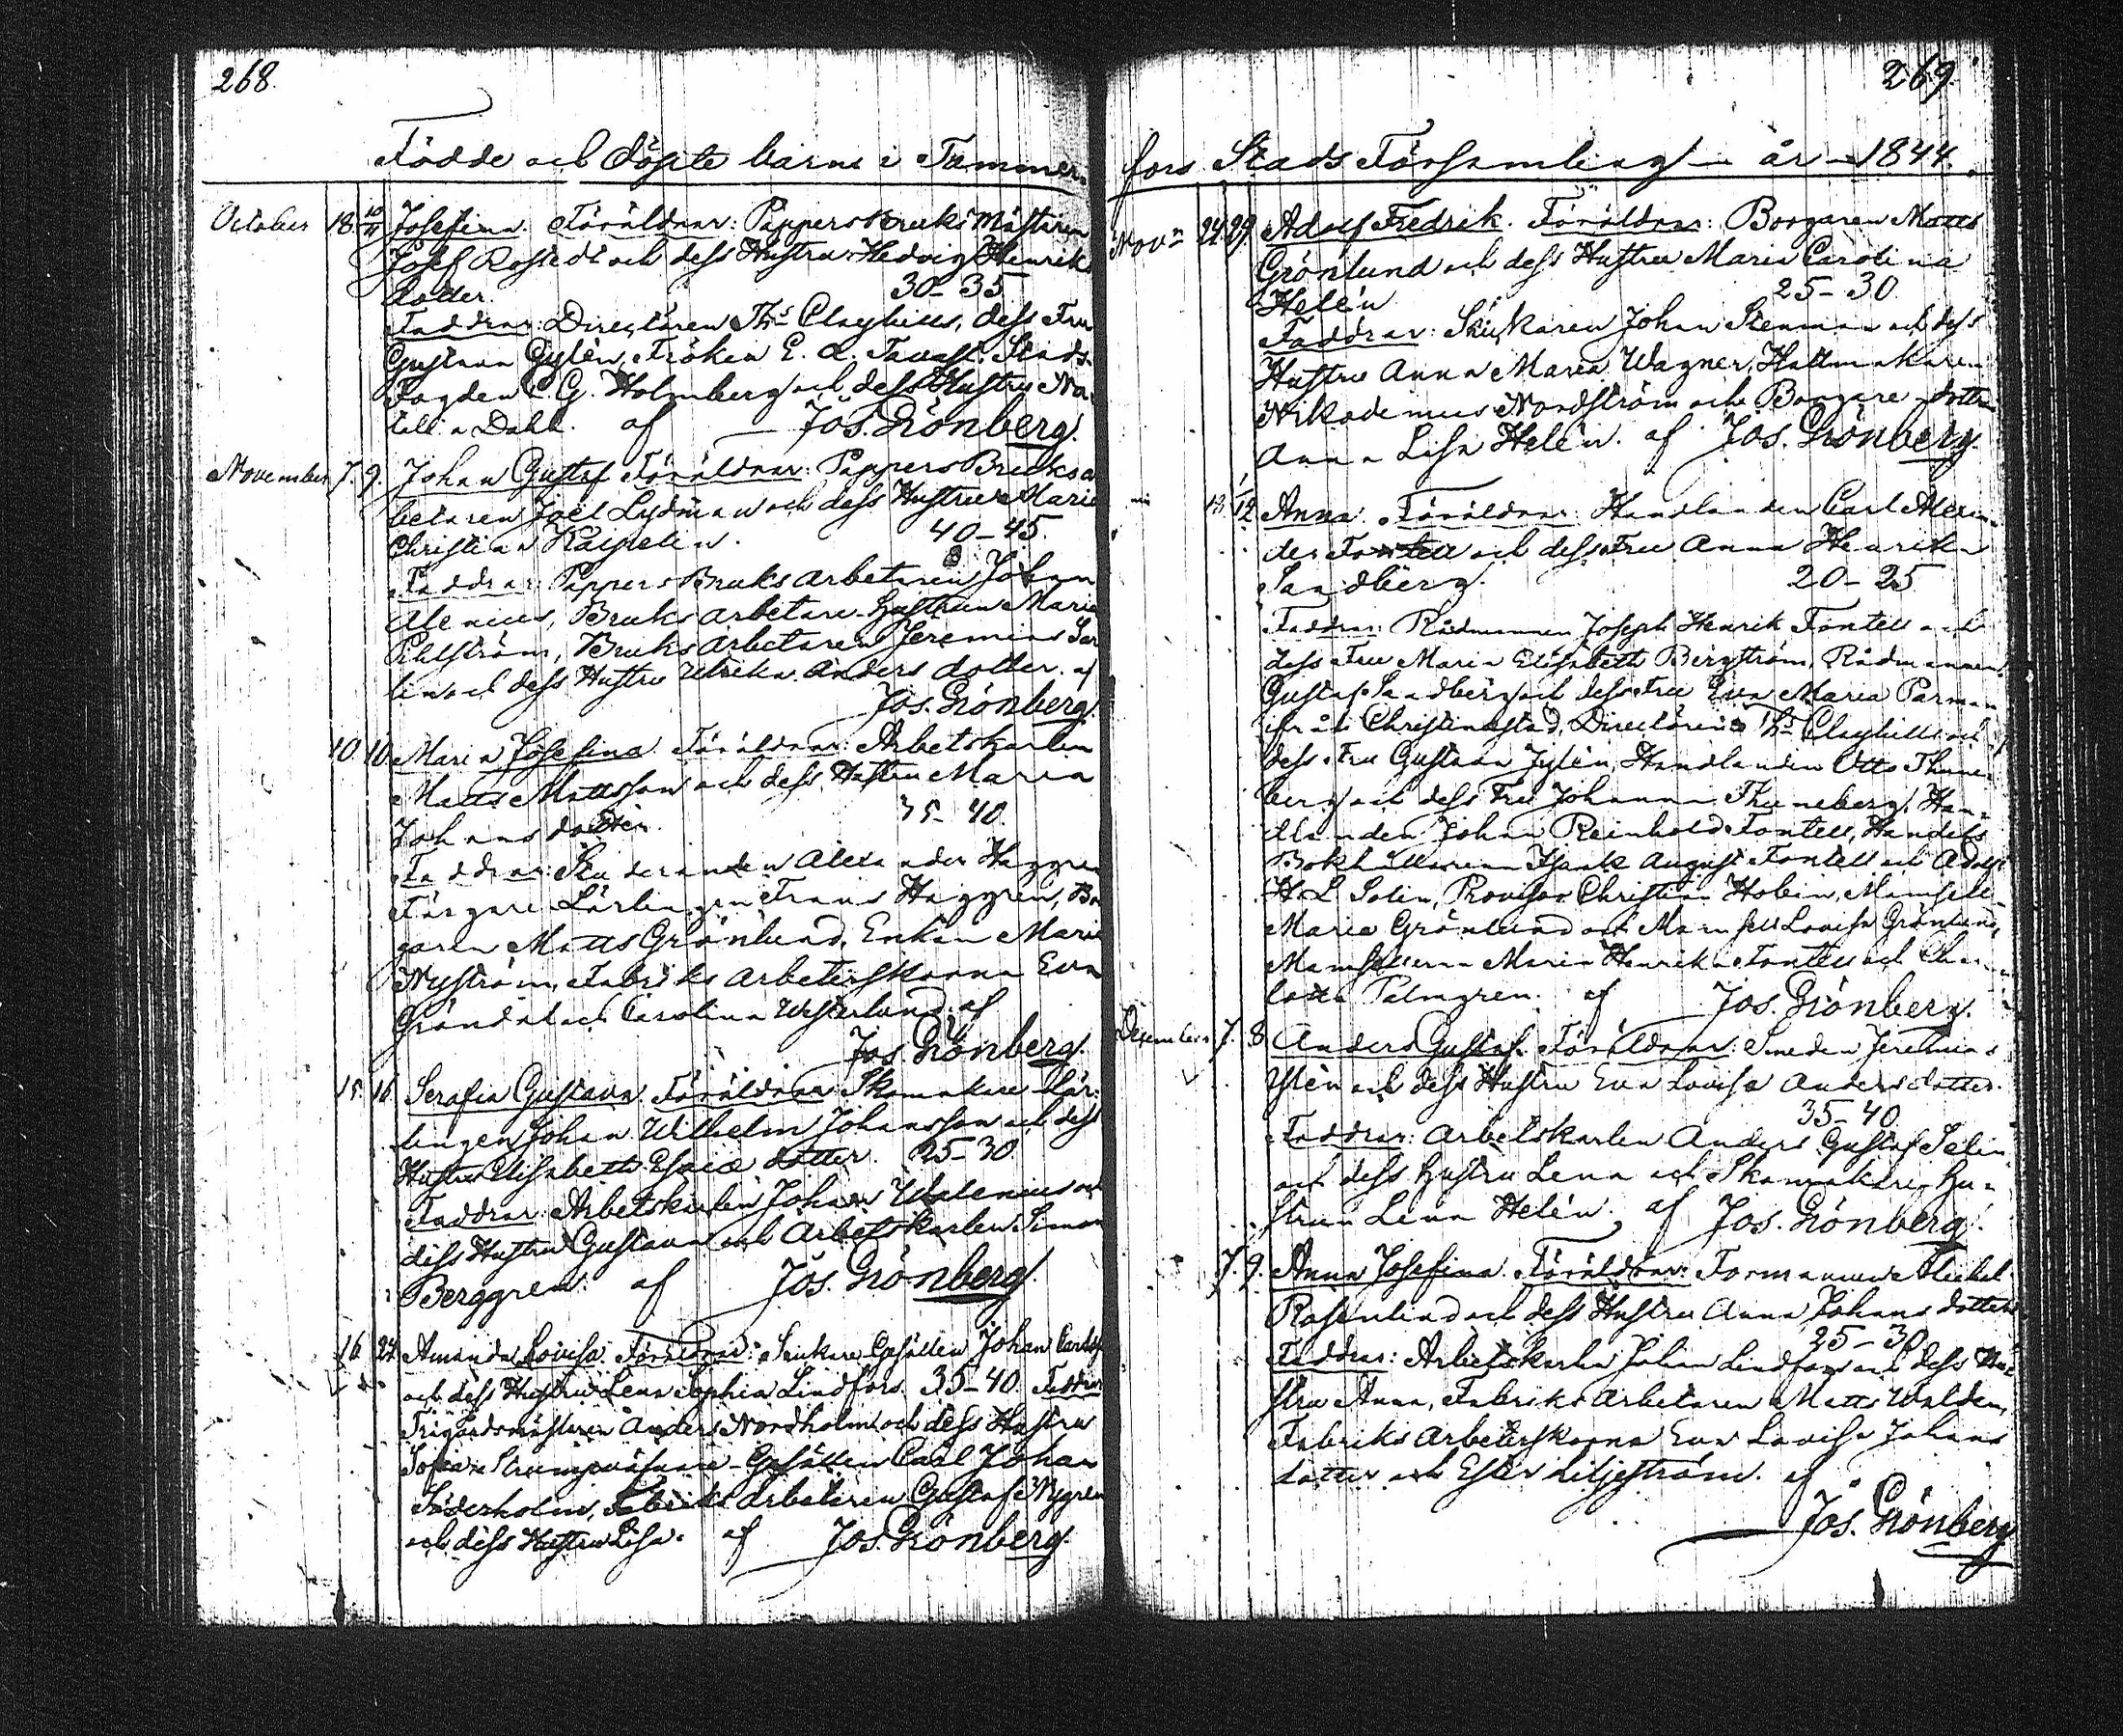 268.
Födde och döpte barn i Tammer-
October 18. 10/11 Josefina. Föräldrar: PappersBruksMästaren
Josef Rostedt och dess Hustru Hedvig Henriks
dotter. 30-35
Faddrar: Directören Ths Clayhills, dess Fru
Gustava Gylén, Fröken E. A. Tavast. Stads-
Fogden C. G. Holmberg och dess Hustru Na-
talia Dahl. af Jos. Grönberg.
November 7. 9. Johan Gustaf. Föräldrar: PappersBruksar
betaren Joel Lydman och dess Hustru Maria
Christina 40-45.
Faddrar: PappersBruks arbetaren Johan
Alenius, Bruks arbetare Hustrun Maria
Pihlström, Bruks arbetaren Jeremias
lin och dess Hustru Ulrika Anders dotter. af
Jos. Grönberg.
10. 10. Maria Josefina. Föräldrar: Arbetskarlen
Matts Mattsson och dess Hustru Maria
Johans dotter. 35-40.
Faddrar: Studeranden Alexander Häggren
Färgare Lärlingen Frans Häggren, Bor
garen Matts Grönlund, Enkan Maria
Nyström, Fabriks arbeterskorna Eva
Gröndal och Carolina Westerlund. af
Jos. Grönberg.
15. 16. Serafia Gustava. Föräldrar: Skomakare Lär-
lingen Johan Wilhelm Johansson och dess
Hustru Elisabeth Esaiæ dotter. 25-30
Faddrar: Arbetskarlen Johan Walenius och
dess Hustru Gustava och Arbetskarlen Simon
Berggren. af Jos. Grönberg.
16. 24. Amanda Lovisa. Föräldrar: Snickare Gesällen Johan Carlsson
och dess Hustru Lena Sophia Lindfors. 35-40. Faddrar
Trägårdsmästaren Anders Nordholm och dess Hustru
Sofia, Strumpväfvare-Gesällen Carl Johan
Söderholm, Fabriks arbetaren Gustaf Nygren
och dess Hustru Lisa. af Jos. Grönberg.
269.
fors Stads Församling år 1844.
Novr 24. 29. Adolf Fredrik. Föräldrar: Borgaren Matts
Grönlund och dess Hustru Maria Carolina
Helén 25-30.
Faddrar: Snickaren Johan Stenman och dess
Hustru Anna Maria Wagner, Hattmakaren
Nikodemus Nordström och Borgare dottren
Anna Lisa Helén. af Jos. Grönberg.
13. 1/12 Anna. Föräldrar: Handlanden Carl Alexan-
der Fontell och dess Fru Anna Henrika
Sandberg. 20-25
Faddrar: Rådmannen Joseph Henrik Fontell och
dess Fru Maria Elisabeth Bergström, Rådmannen
Gustaf Sandberg och dess Fru Eva Maria Parman
ifrån Christinestad, Directören Ths Clayhills och
dess Fru Gustava Jylén, Handlanden Otto Thune-
berg och dess Fru Johanna Thuneberg, Han-
dlanden Johan Reinhold Fontell, Handels
Bokhållaren Isaak August Fontell och Adolf
H. L. Solin, Provisor Christian Hobin, Mamsell
Maria Grönlund och Mamsell Lovisa Grönlund,
Mamsellerna Maria Henrika Fontell och Char-
lotta Palmgren. af Jos. Grönberg.
December 7. 8. Anders Gustaf. Föräldrar: Smeden Jeremias
Ystén och dess Hustru Eva Lovisa Anders dotter.
35-40
Faddrar: Arbetskarlen Anders Gustaf Selin
och dess Hustru Lena och Skomakare-Hu-
strun Lena Helén. af Jos. Grönberg.
7. 9. Anna Josefina. Föräldrar: Formannen Mickel
Rosenlind och dess Hustru Anna Johans dotter
25-30
Faddrar: Arbetskarlen Johan Lindfors och dess Hu-
stru Anna, Fabriks Arbetaren Matts Walden,
Fabriks Arbeterskorna Eva Lovisa Johans
dotter och Ester Liljeström. af
Jos. Grönberg